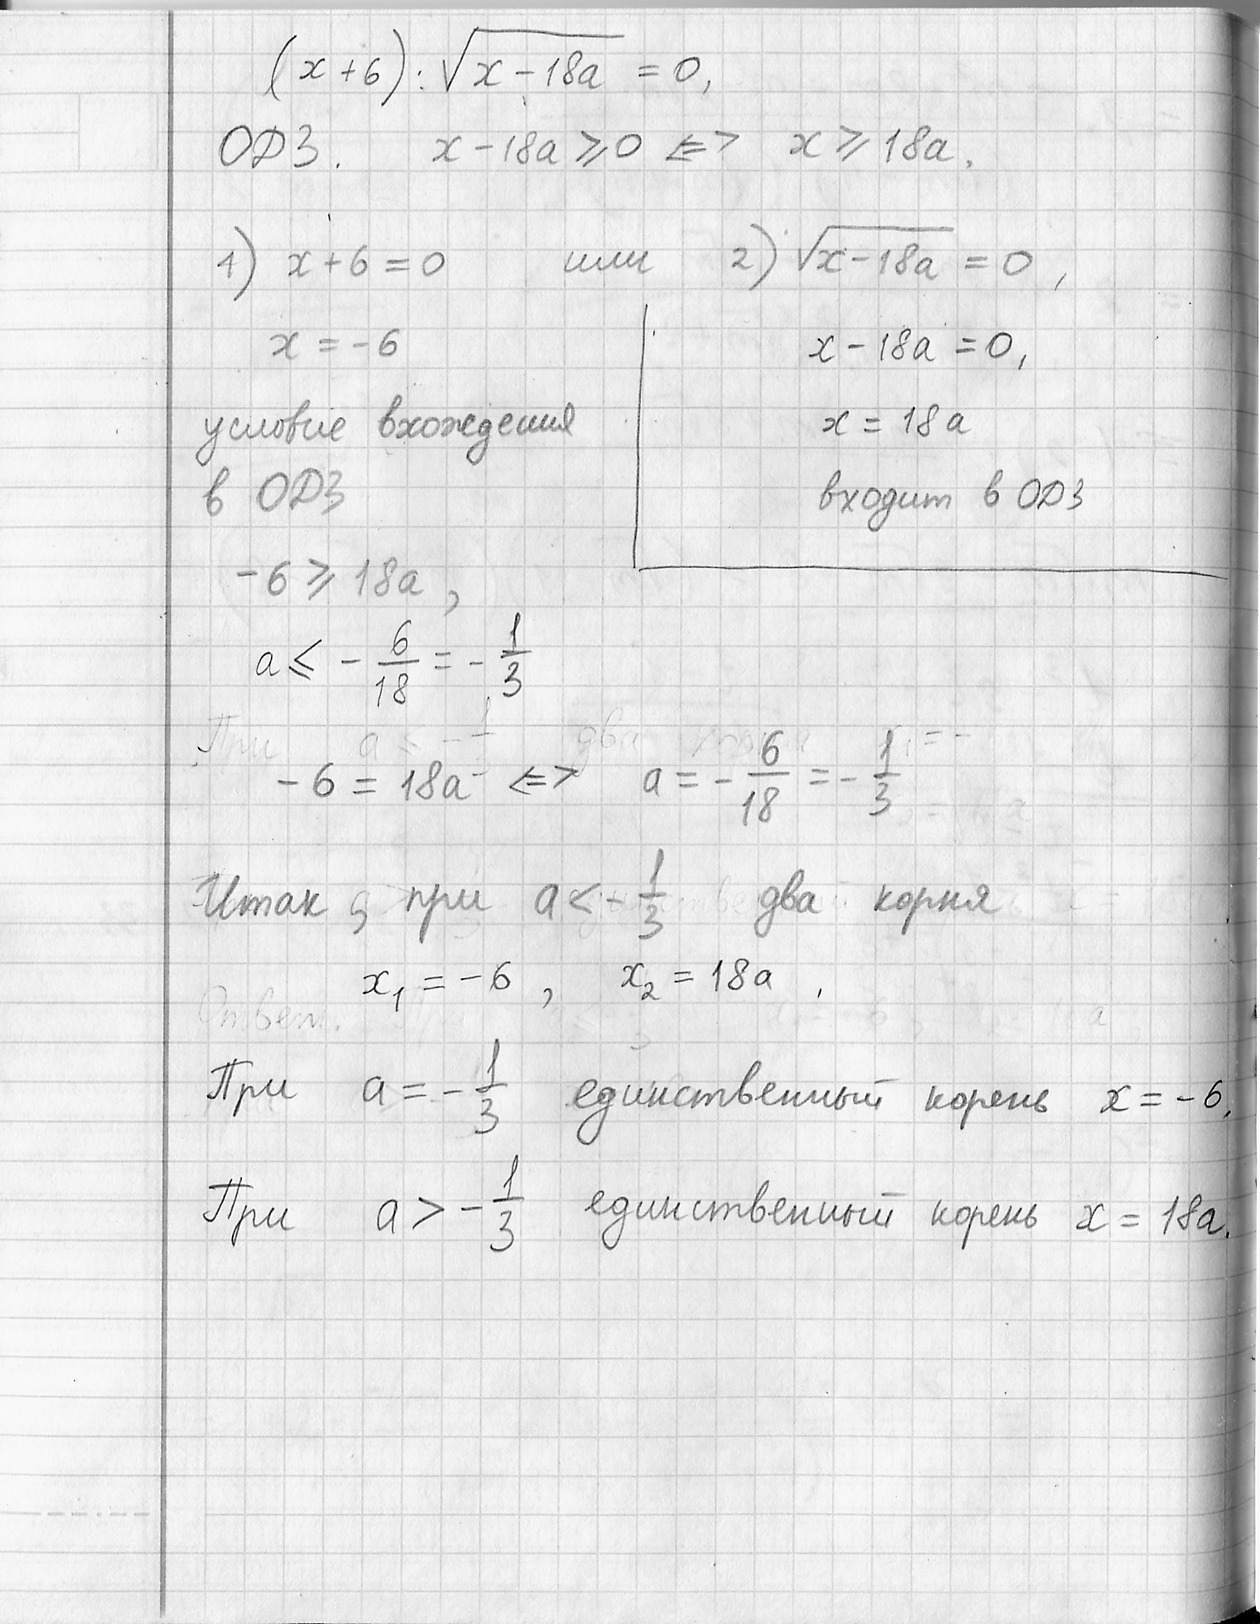 (x+6):√(x-18a) = 0,
ОДЗ. x-18a ⩾ 0 <=> x ⩾ 18a.
1) x+6=0 или 2) √(x-18a) = 0,
x = -6
x-18a = 0,
условие вхождения
x = 18a
в ОДЗ
входит в ОДЗ
-6 ⩾ 18a,
a ⩽ -6/18 = -1/3
-6 = 18a <=> a = -6/18 = -1/3
Итак, при a < -1/3 два корня
x₁ = -6, x₂ = 18a,
При a = -1/3 единственный корень x = -6.
При a > -1/3 единственный корень x = 18a.